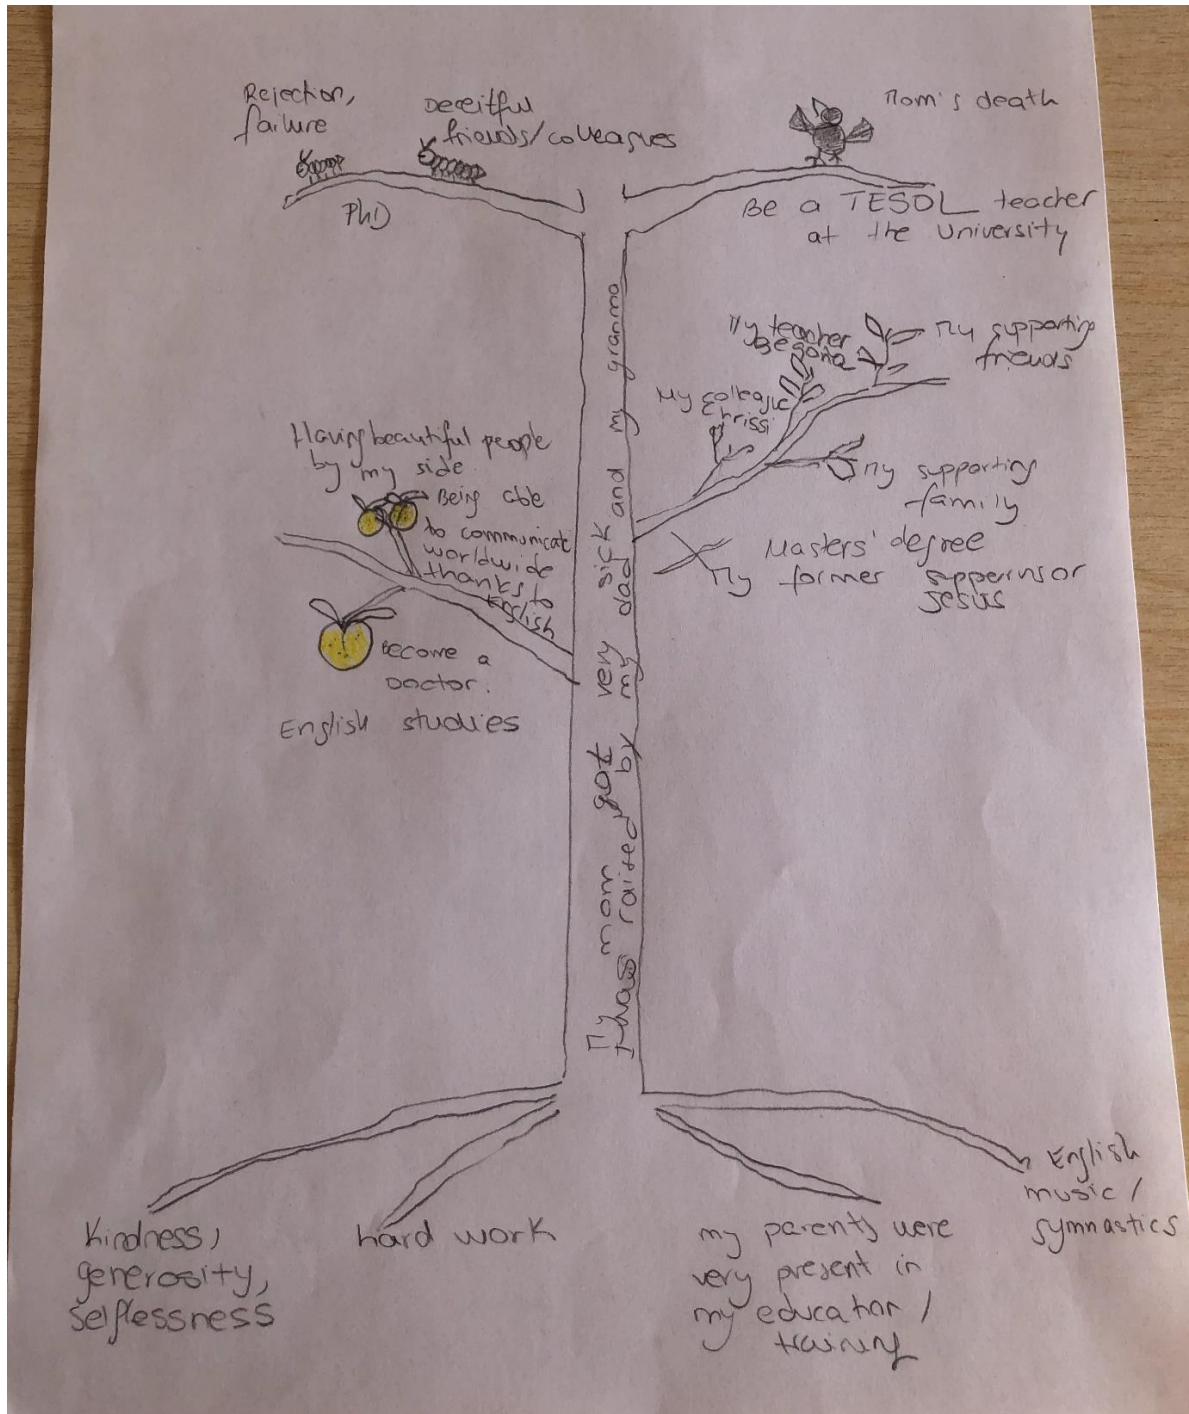 Rejection,
failure
Deceitful
friends/colleagues
Mom's death
PhD
Be a TESOL teacher
at the University
My teacher
Begoña
My supporting
friends
My colleague
Chrissi
My supporting
family
Masters' degree
My former suppervisor
Jesús
Having beautiful people
by my side
Being able
to communicate
worldwide
thanks to
English
Become a
Doctor.
English studies
My mom got very sick and my granma
I was raised by my dad
Kindness,
generosity,
selflessness
hard work
my parents were
very present in
my education /
training
English
music /
gymnastics